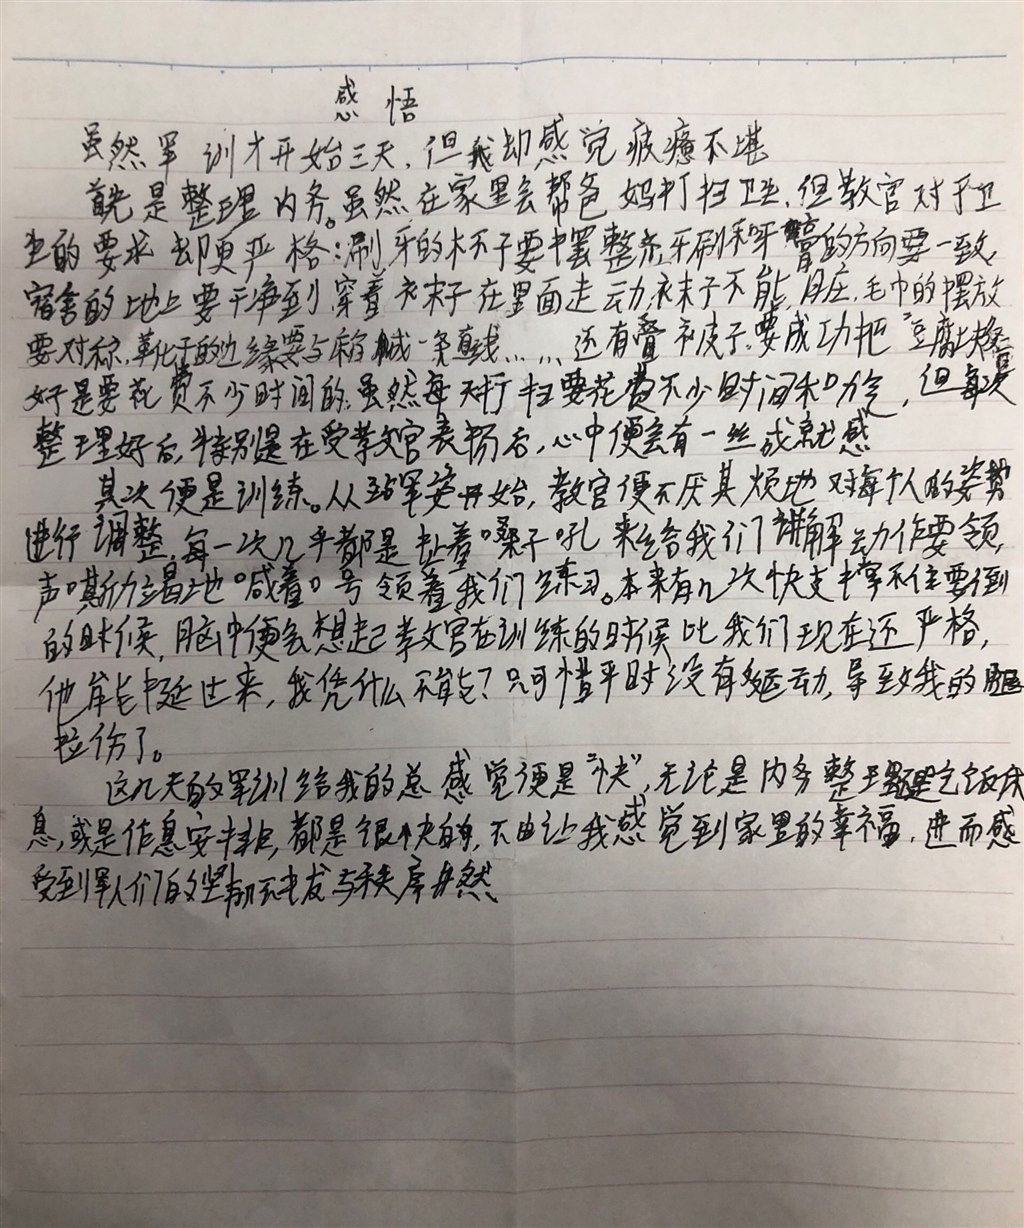 感悟
虽然军训才开始三天,但我却感觉疲惫不堪
首先是整理内务。虽然在家里会帮爸妈打扫卫生,但教官对于卫
生的要求却更严格:刷牙的杯子要摆整齐,牙刷和牙膏的方向要一致,
宿舍的地上要干净到穿着袜子在里面走动,袜子不能脏,毛巾的摆放
要对称,鞋子的边缘要与 成一条直线……还有叠被子,要成功把"豆腐块"叠
好是要花费不少时间的。虽然每天打扫要花费不少时间和力气,但每次
整理好后,特别是在受教官表扬后,心中便会有一丝成就感
其次便是训练。从站军姿开始,教官便不厌其烦地对每个人的姿势
进行调整,每一次几乎都是扯着嗓子吼来给我们讲解动作要领,
声嘶力竭地喊着口号领着我们练习。本来有几次快支撑不住要倒
的时候,脑中便会想起教官在训练的时候比我们现在还严格,
他能挺过来,我凭什么不能?只可惜平时没有多运动,导致我的腿
拉伤了。
这几天的军训给我的总感觉便是"快",无论是内务整理还是吃饭休
息,或是作息安排,都是很快的,不由让我感觉到家里的幸福,进而感
受到军人们的坚韧不拔与秩序井然